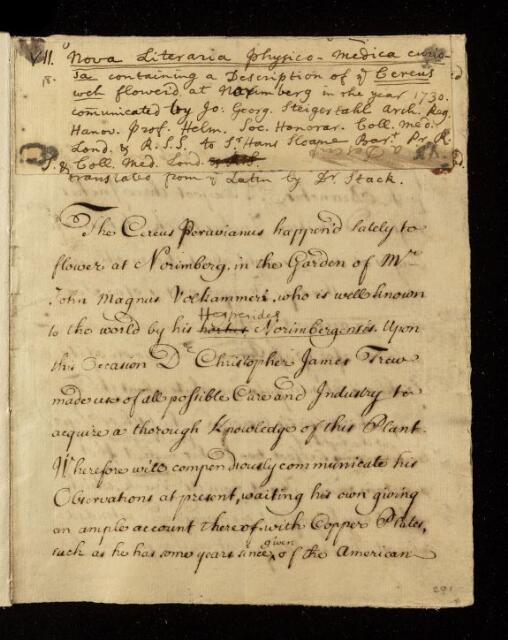 VII. Nova Literaria Physico-Medica curio-
sa containing a Description of ye Cereus
wch flower'd at Norimberg in the year 1730.
communicated by Jo: Georg. Steigertahl Arch. Reg.
Hanov. Prof. Helm. Soc. Honorar. Coll. med.
Lond. & R.S.S. to Sr Hans Sloane Bart. Pr. R.
S. & Coll. Med. Lond.
translated from ye Latin by Dr Stack.
The Cereus Peruvianus happen'd lately to
flower at Norimberg, in the Garden of Mr
John Magnus Volkammer, who is well known
Hesperides
to the world by his hortus Norimbergensis. Upon
this Occasion Dr Christopher James Trew
made use of all possible Care and Industry to
acquire a thorough Knowledge of this Plant.
Wherefore will compendiously communicate his
Observations at present, waiting his own giving
an ample account thereof, with Copper Plates,
given
such as he has some years since of the American
291